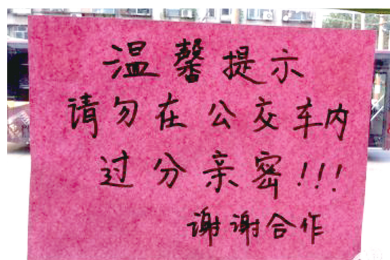 温馨提示
请勿在公交车内
过分亲密!!!
谢谢合作